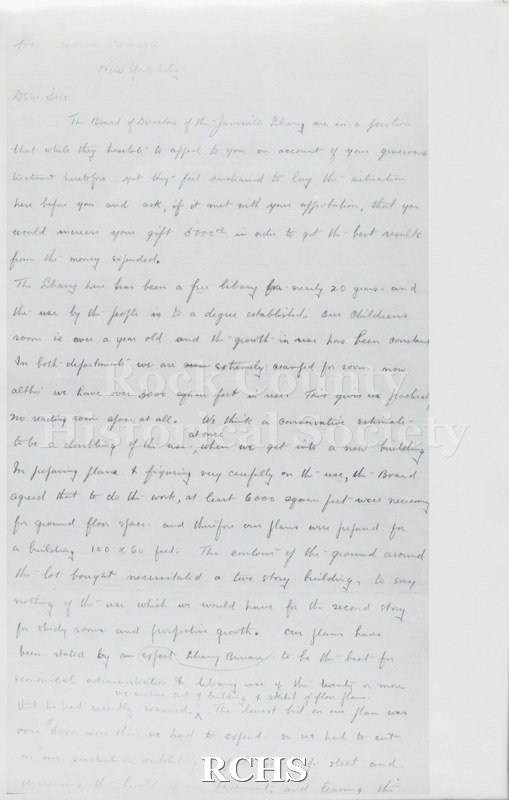 Hon Andrew Carnegie
New York City.
Dear Sir:
The Board of Directors of the Janesville Library are in a position
that while they hesitate to appeal to you on account of your generous
treatment heretofore yet they feel constrained to lay the situation
here before you and ask, if it met with your approbation, that you
would increase your gift 5000 in order to get the best results
from the money expended.
The Library here has been a free library for nearly 20 years and
the use by the people is to a degree established. Our childrens
room is over a year old and the growth in use has been constant
In both departments we are extremely cramped for room now
altho we have over 3000 square feet in use. This gives us practically
no reading room space at all. We think a conservative estimate
to be a doubling of the use at once when we get into a new building
In preparing plans & figuring very carefully on the use, the Board
agreed that to do the work, at least 6000 square feet were necessary
for ground floor space and therefore our plans were prepared for
a building 100 x 60 feet. The contour of the ground around
the lot bought necessitated a two story building, to say
nothing of the use which we would have for the second story
for study rooms and prospective growth. Our plans have
been stated by an expert Library Bureau to be the best for
economical administration & library use of the twenty or more
we enclose cut of building & sketch of floor plans
that he had recently examined. The lowest bid on our plan was
over 5000 more than we had to expend so we had to cut
on our construction steel and
decreasing the height of our basement, and leaving the
Rock County
Historical Society
RCHS